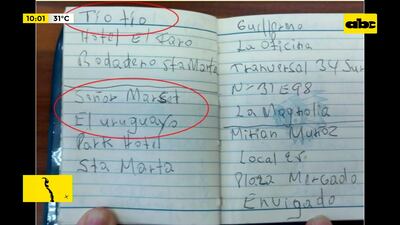 10:01 31°C
abc
Tío tío
Hotel El Faro
Rodadero Sta Marta
Señor Marset
El uruguayo
Park Hotel
Sta Marta
Guillermo
La Oficina
Tranversal 34 Sur
N= 31E98
La Magnolia
Mirian Muñoz
Local
Plaza Mercado
Envigado